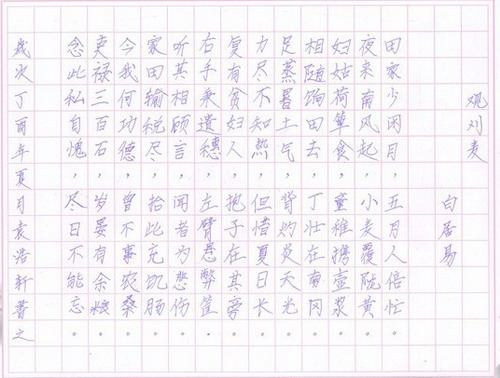 观刈麦
白居易
田家少闲月，五月人倍忙。
夜来南风起，小麦覆陇黄。
妇姑荷箪食，童稚携壶浆。
相随饷田去，丁壮在南冈。
足蒸暑土气，背灼炎天光。
力尽不知热，但惜夏日长。
复有贫妇人，抱子在其旁。
右手秉遗穗，左臂悬弊筐。
听其相顾言，闻者为悲伤。
家田输税尽，拾此充饥肠。
今我何功德，曾不事农桑。
吏禄三百石，岁晏有余粮。
念此私自愧，尽日不能忘。
岁次丁酉年夏月袁浩新书之